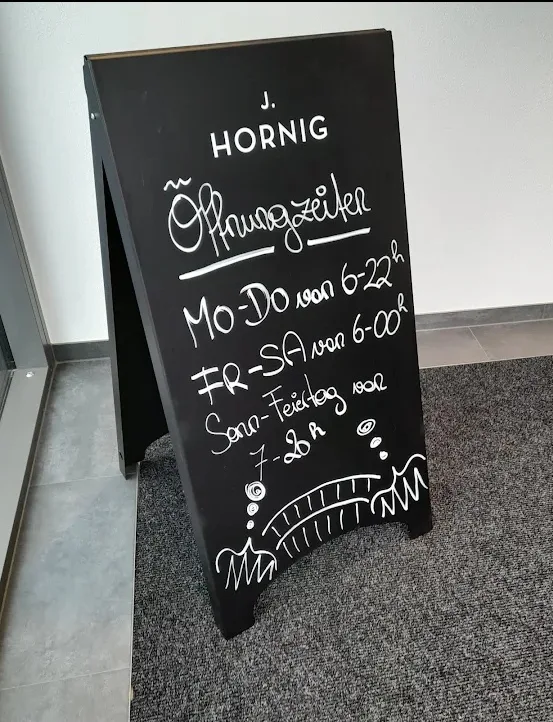 J.
HORNIG
Öffnungzeiten
MO-DO von 6-22h
FR-SA von 6-00h
Sonn-Feiertag von
7-20h